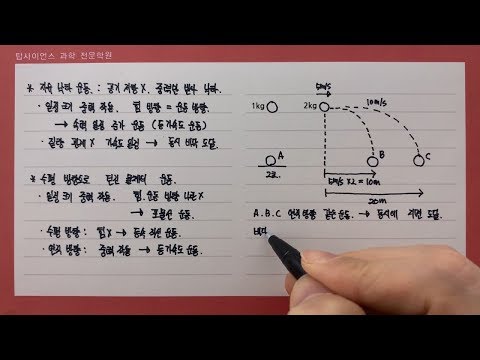 탑사이언스 과학 전문학원
* 자유 낙하 운동. : 공기 저항 X. 중력만 받아 낙하.
· 일정 크기 중력 작용. 힘 방향 = 운동 방향.
→ 속력 일정 증가 운동 (등가속도 운동)
· 질량 관계 X 가속도 일정 → 동시 바닥 도달.
* 수평 방향으로 던진 물체의 운동.
· 일정 크기 중력 작용. 힘. 운동 방향 나란 X
→ 포물선 운동.
· 수평 방향 : 힘 X → 등속 직선 운동.
· 연직 방향 : 중력 작용 → 등가속도 운동.
5m/s
1kg
2kg
10m/s
A
B
C
2초.
5m/s X 2 = 10m
20m
A. B. C 연직 방향 같은 운동. → 동시에 지면 도달.